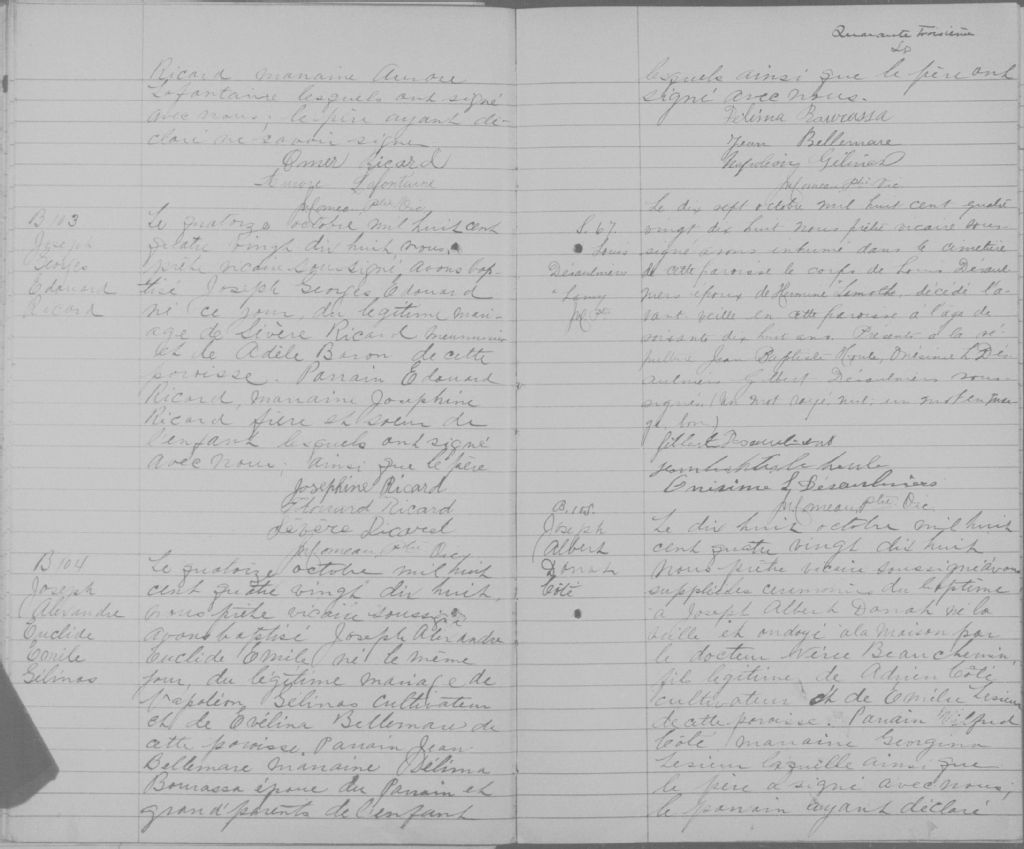 Ricard marraine Aurore
Lafontaine lesquels ont signé
avec nous; le père ayant dé-
claré ne savoir signer
Omer Ricard
Aurore Lafontaine
ptre Vic
B 103
Joseph
Georges
Edouard
Ricard
Le quatorze octobre mil huit cent
quatre vingt dix huit nous
prêtre vicaire soussigné avons bap-
tisé Joseph Georges Edouard
né ce jour, du légitime mari-
age de Sévère Ricard
et de Adèle Baron de cette
paroisse. Parrain Edouard
Ricard, marraine Joséphine
Ricard frère et soeur de
l'enfant lesquels ont signé
avec nous; ainsi que le père
Joséphine Ricard
Edouard Ricard
Sévère Ricard
ptre Vic
B 104
Joseph
Alexandre
Euclide
Emile
Gélinas
Le quatorze octobre mil huit
cent quatre vingt dix huit,
nous prêtre vicaire soussigné
avons baptisé Joseph Alexandre
Euclide Emile né le même
jour, du légitime mariage de
Napoléon Gélinas cultivateur
et de Evélina Bellemare de
cette paroisse. Parrain Jean
Bellemare marraine Délima
Bourassa épouse du Parrain et
grand'parents de l'enfant
Quarante troisième
lesquels ainsi que le père ont
signé avec nous.
Délima Bourassa
Jean Bellemare
Napoléon Gélinas
ptre Vic
S. 67.
Louis
Désaulniers
Lamy
Le dix sept octobre mil huit cent quatre
vingt dix huit nous prêtre vicaire sous-
signé avons inhumé dans le cimetière
de cette paroisse le corps de Louis Désaul-
niers époux de Hermine Lamothe, décédé l'a-
vant veille en cette paroisse à l'âge de
soixante dix huit ans. Présents à la sé-
pulture Jean Baptiste Houle, Onésime L. Dés-
aulniers Gilbert Désaulniers sous-
signés (un mot rayé nul; un mot en mar-
ge bon)
Gilbert Desaulniers
Jean Baptiste houle
Onisime L Désaulniers
ptre Vic.
B. 105.
Joseph
Albert
Donat
Côté
Le dix huit octobre mil huit
cent quatre vingt dix huit
nous prêtre vicaire soussigné avons
suppléé les ceremonies du baptême
à Joseph Albert Donat né la
veille et ondoyé à la maison par
le docteur Nérée Beauchemin,
fils légitime de Adrien Côté
cultivateur et de Emélie Lesieur
de cette paroisse. Parrain Wilfred
Côté marraine Georgina
Lesieur laquelle ainsi que
le père a signé avec nous;
le parrain ayant déclaré